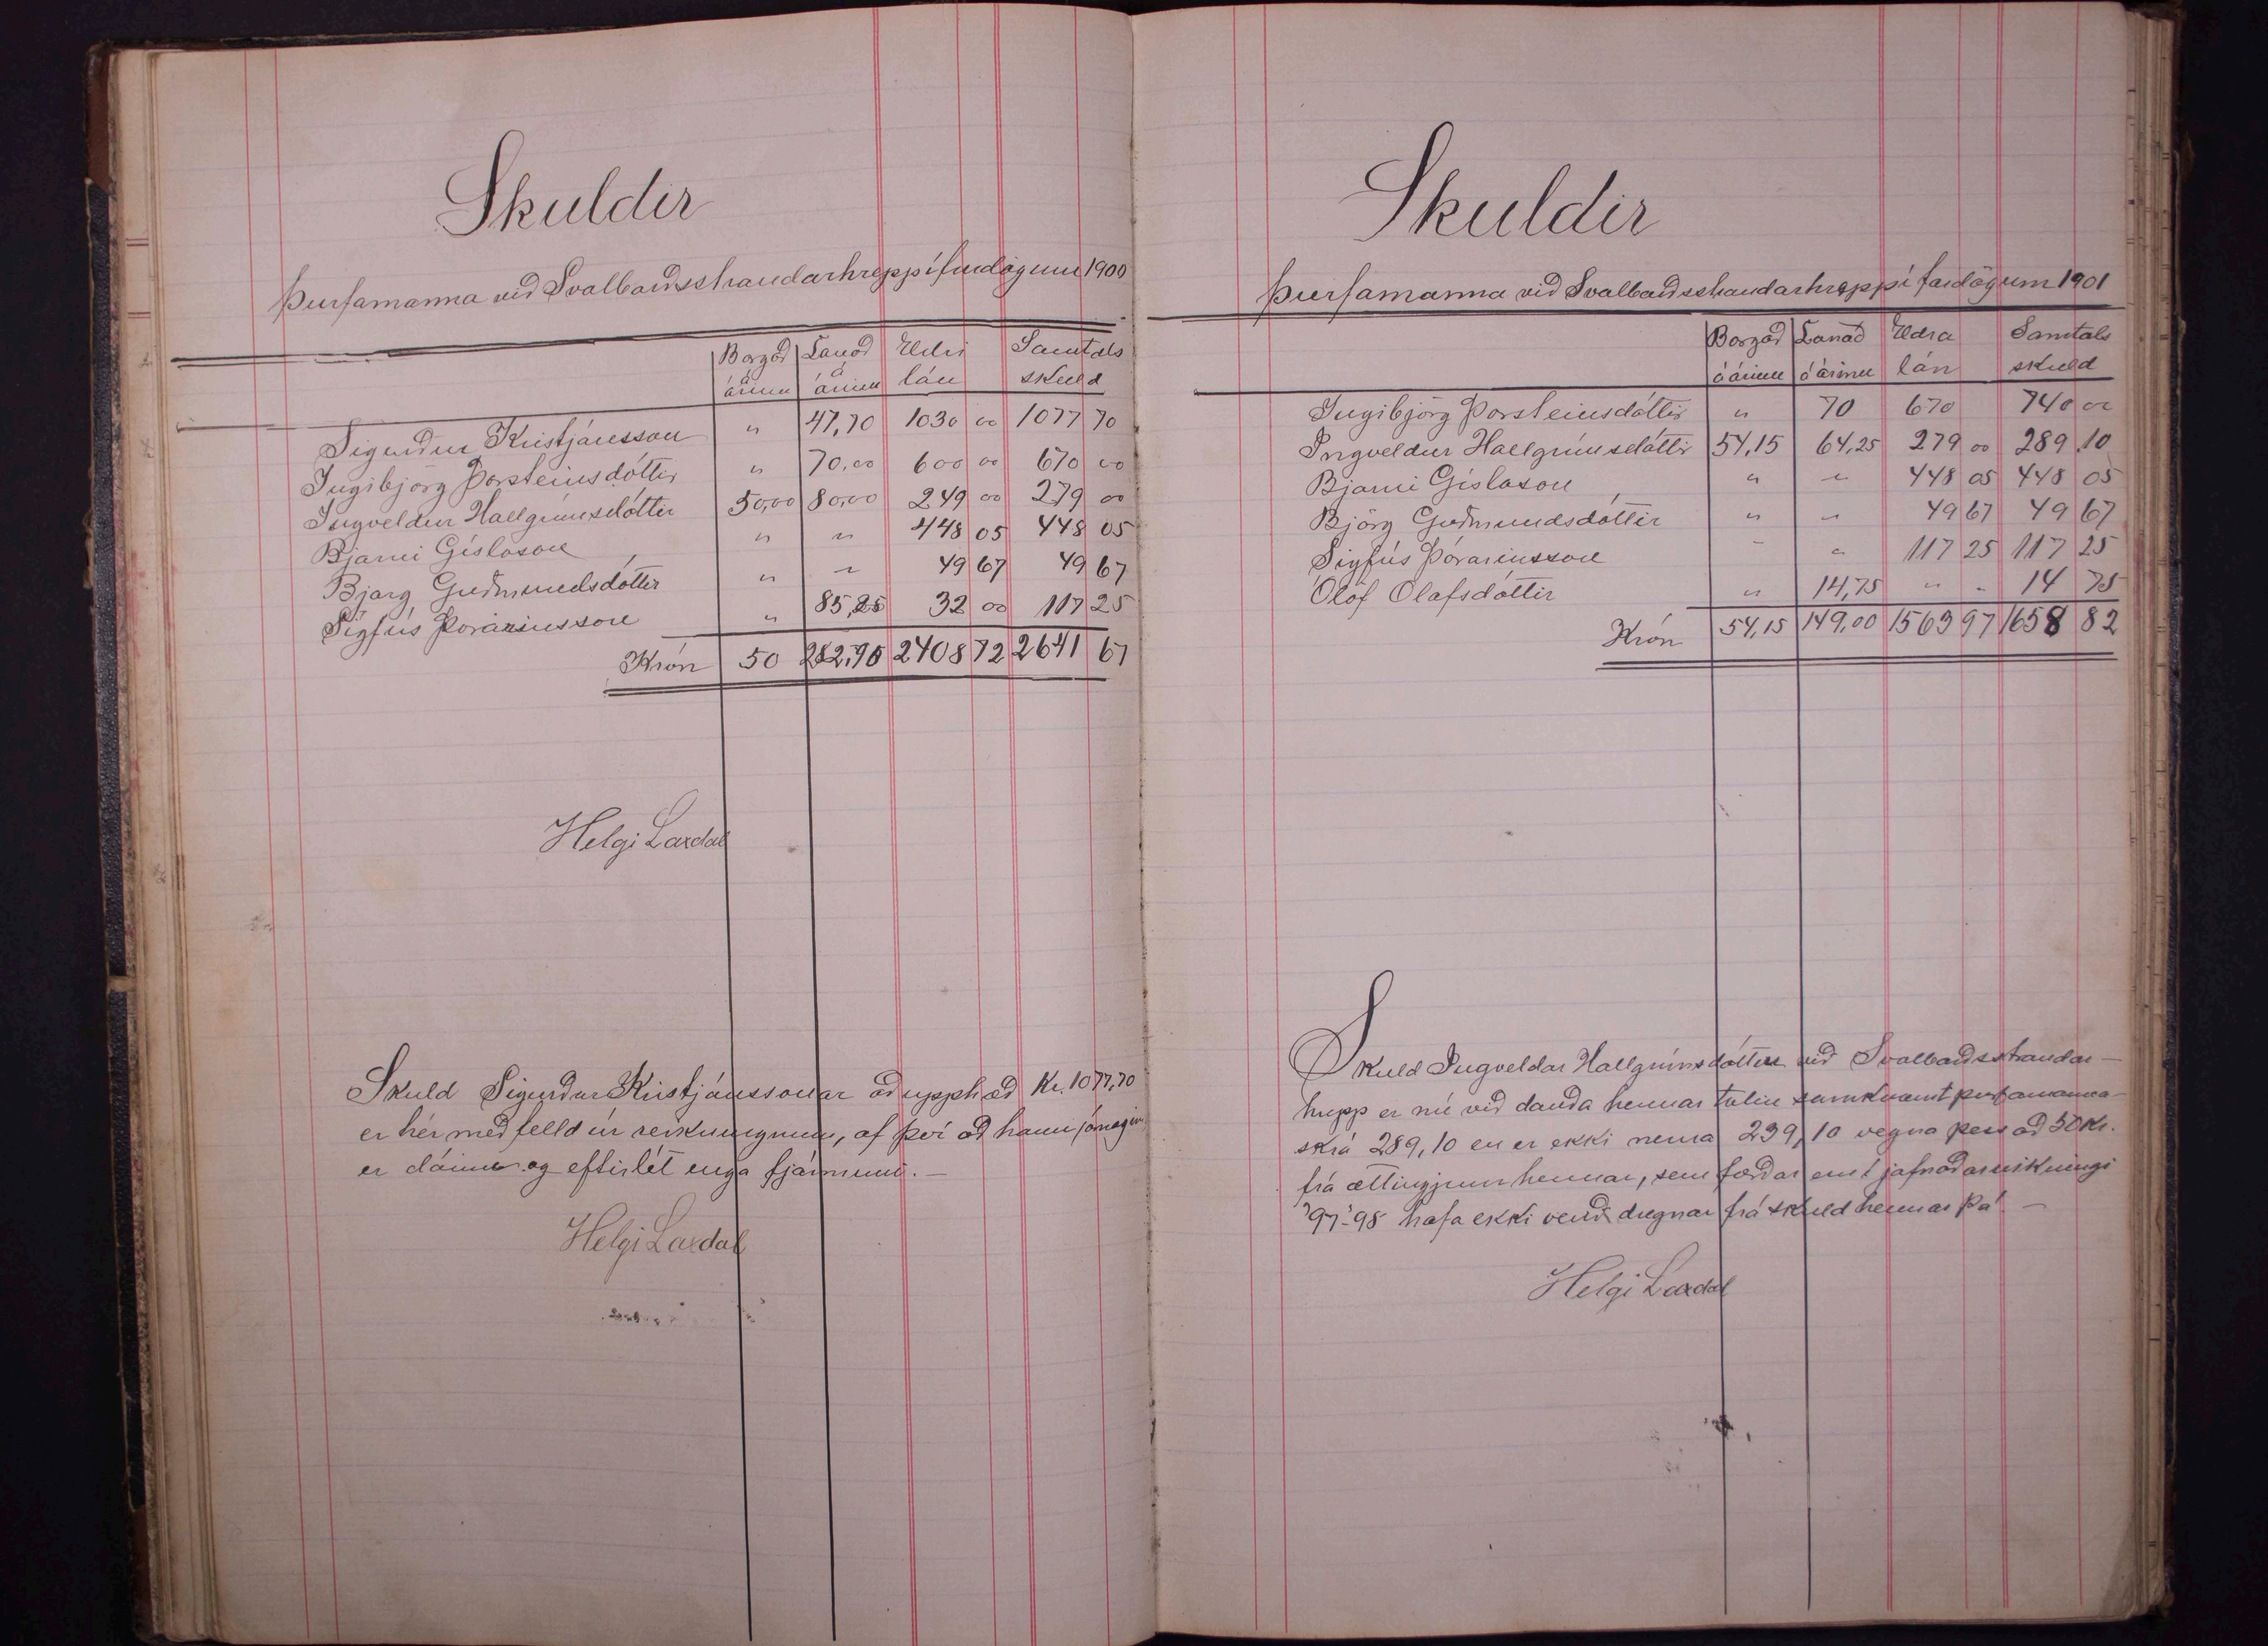 Skuldir
Þurfamanna við Svalbarðsstrandarhrepp í fardögum 1900
Borgað á árinu Lánað á árinu Eldri lán Samtals skuld
Sigurður Kristjánsson " 47,70 1030 00 1077 70
Ingibjörg Þorsteinsdóttir " 70,00 600 00 670 00
Ingveldur Hallgrímsdóttir 50,00 80,00 249 00 279 00
Bjarni Gíslason " " 448 05 448 05
Bjarg Guðmundsdóttir " " 49 67 49 67
Sigfús Þórarinsson " 85,25 32 00 117 25
Krón 50 282,95 2408 72 2641 67
Helgi Laxdal
Skuld Sigurðar Kristjánssonar að upphæð Kr. 1077,70
er hér með felld úr reikningnum, af því að hann ómaginn
er dáinn og eftirlét enga fjármuni. –
Helgi Laxdal
Skuldir
Þurfamanna við Svalbarðsstrandarhrepp í fardögum 1901
Borgað á árinu Lánað á árinu Eldra lán Samtals skuld
Ingibjörg Þorsteinsdóttir " 70 670 740 00
Ingveldur Hallgrímsdóttir 54,15 64,25 279 00 289,10
Bjarni Gíslason " " 448 05 448 05
Björg Guðmundsdóttir " " 49 67 49 67
Sigfús Þórarinsson - " 117 25 117 25
Ólöf Ólafsdóttir " 14,75 " - 14 75
Krón 54,15 149,00 1563 97 1658 82
Skuld Ingveldar Hallgrímsdóttur við Svalbarðsstrandar-
hrepp er nú við dauða hennar talin samkvæmt þurfamanna-
skrá 289,10 en er ekki nema 239,10 vegna þess að 50 Kr.
frá ættingjum hennar, sem færðar eru í jafnaðarreikningi
'97-'98 hafa ekki verið dregnar frá skuld hennar þá –
Helgi Laxdal